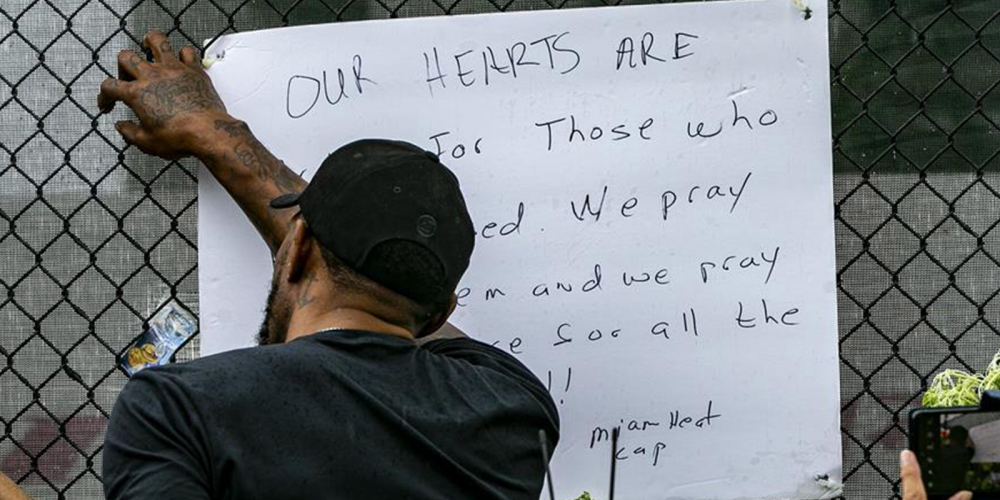 OUR HEARTS ARE
For Those who
ed. We pray
em and we pray
ce for all the
!!
miam Heat
cap